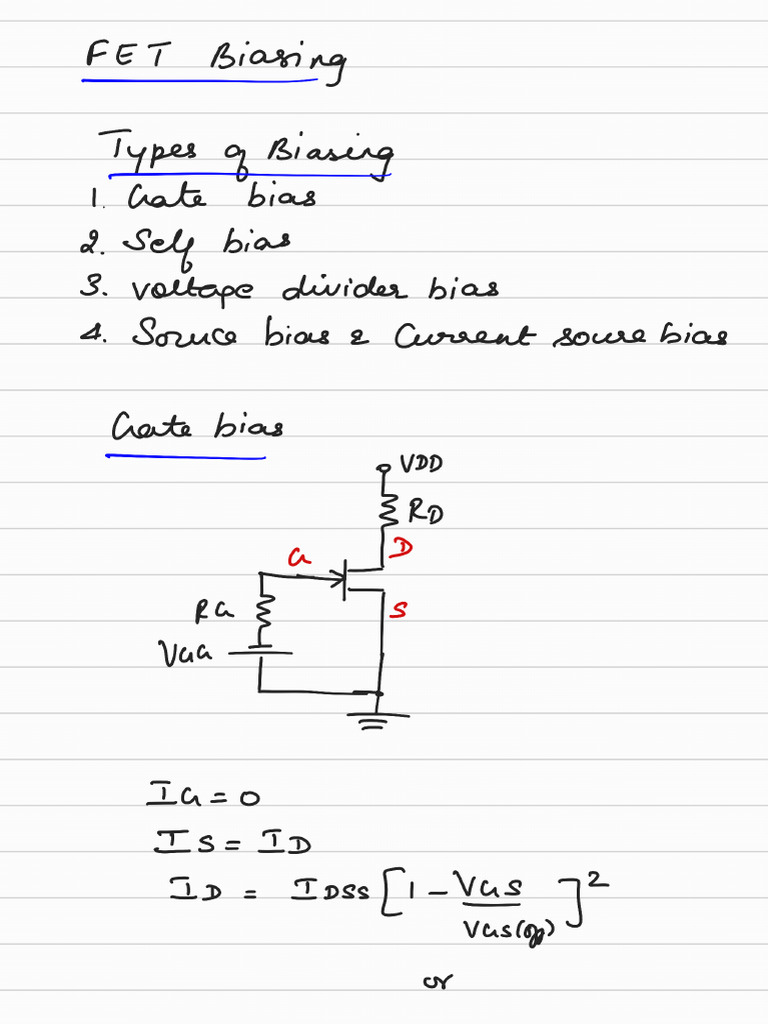 FET Biasing
Types of Biasing
1. Gate bias
2. Self bias
3. Voltage divider bias
4. Soruce bias & Current soure bias
Gate bias
VDD
RD
G
D
RG
S
VGG
IG = 0
IS = ID
ID = IDSS [1 - VGS / VGS(off)]²
or